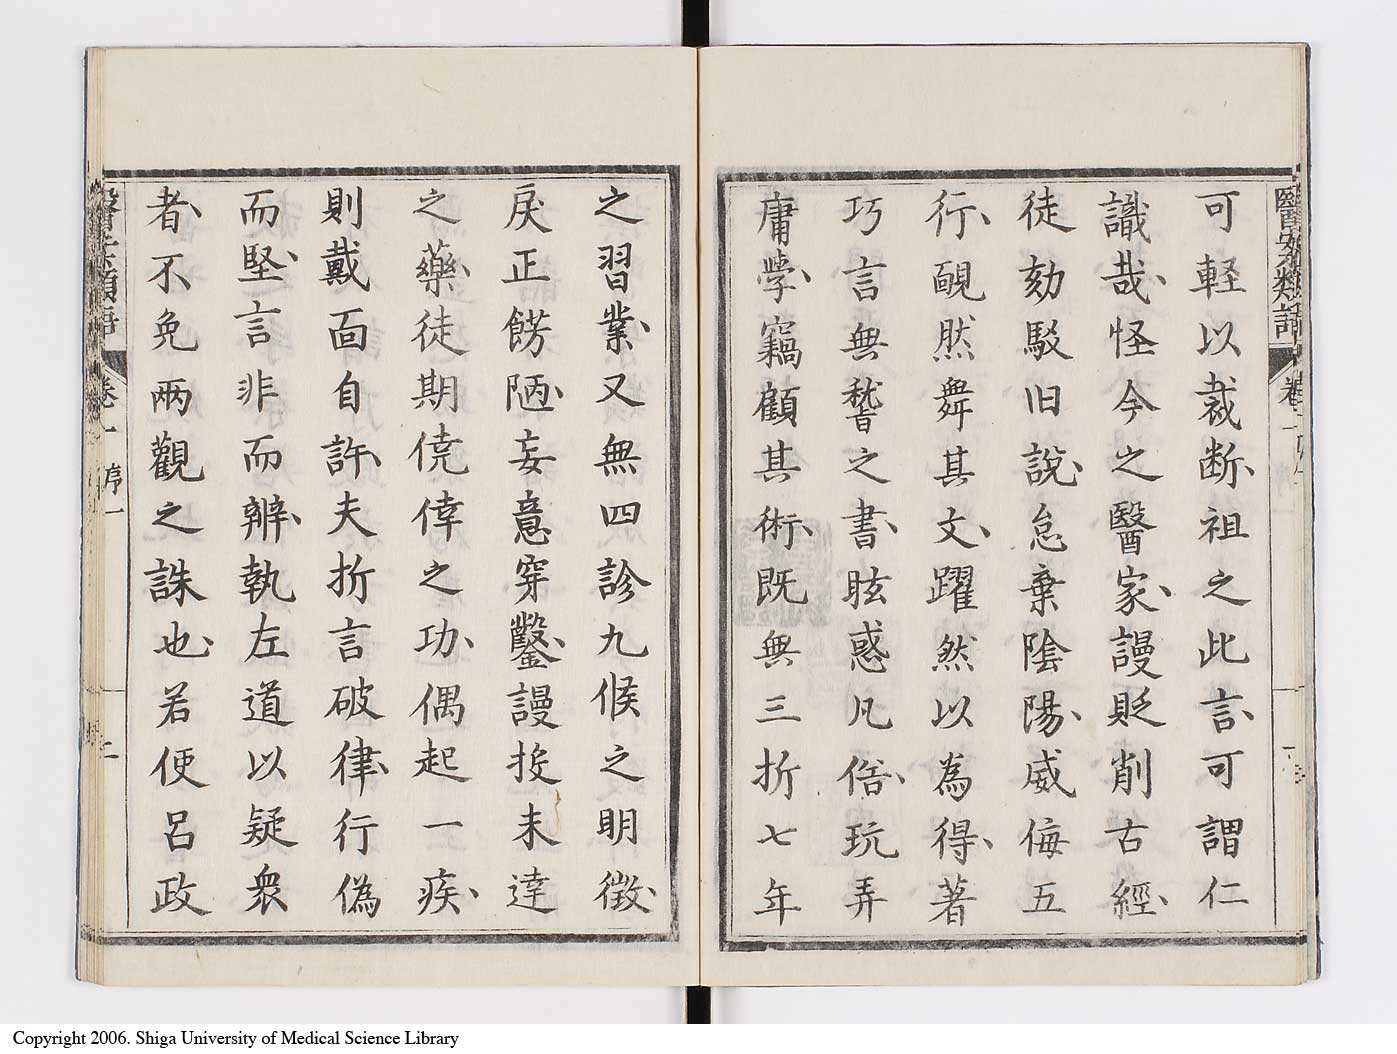 醫案類語
可軽以裁断、祖之此言、可謂仁
識哉、怪今之醫家、謾貶削古經、
徒劾駁旧說、怠棄陰陽、威侮五
行、靦然舞其文、躍然以為得、著
巧言無稽之書、眩惑凡俗、玩弄
庸學、竊顧其術、既無三折七年
之習業、又無四診九候之明徵、
戾正餝陋、妄意穿鑿、謾投未達
之藥、徒期僥倖之功、偶起一疾、
則戴面自許、夫折言破律、行偽
而堅、言非而辨、執左道以疑衆
者、不免兩觀之誅也、若便呂政
醫案類語 卷一 序 二
Copyright 2006. Shiga University of Medical Science Library